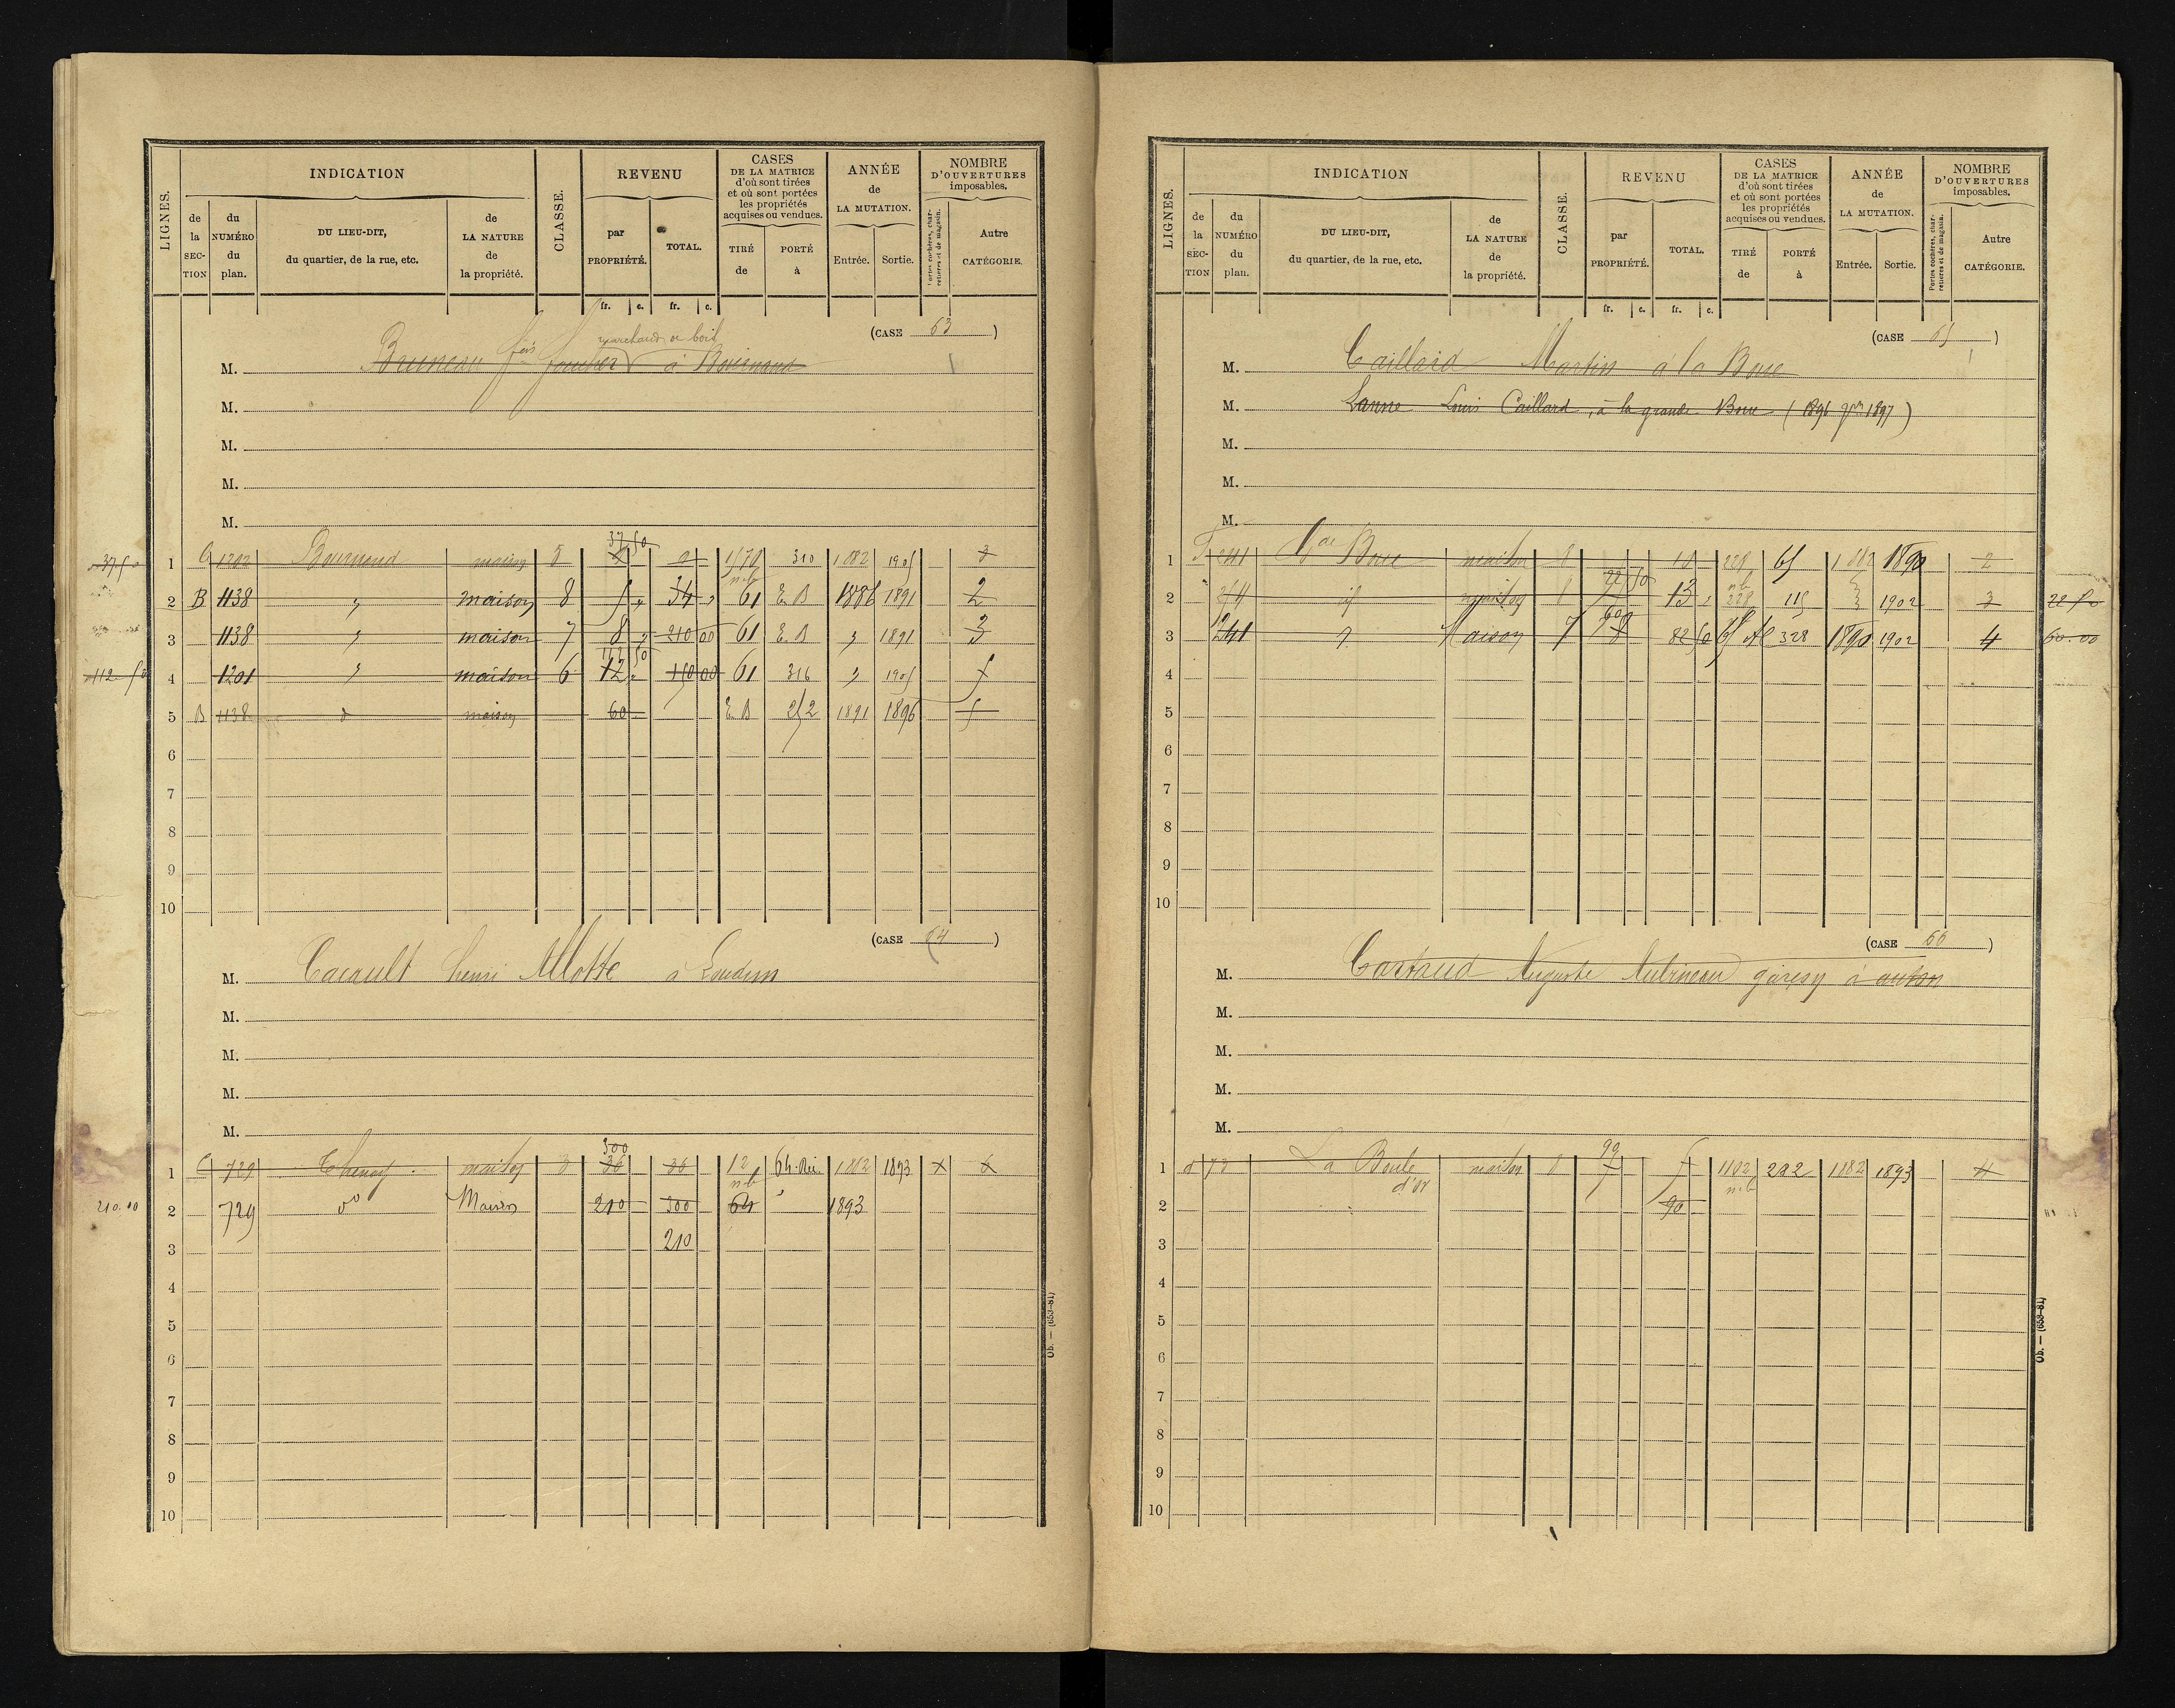 LIGNES.
INDICATION
de la SECTION
du NUMÉRO du plan.
DU LIEU-DIT, du quartier, de la rue, etc.
de LA NATURE de la propriété.
CLASSE.
REVENU
par PROPRIÉTÉ.
TOTAL.
fr. c. fr. c.
CASES DE LA MATRICE d'où sont tirées et où sont portées les propriétés acquises ou vendues.
TIRÉ de
PORTÉ à
ANNÉE de LA MUTATION.
Entrée. Sortie.
NOMBRE D'OUVERTURES imposables.
Portes cochères, charretières et de magasin.
Autre CATÉGORIE.
(CASE 63)
marchand de bois
M. Bruneau fois à Bournand
M.
M.
M.
M.
37 50
1 C 1202 Bournand maison 310 1882 1905 3
2 B 1138 " maison 8 5 " 34 " 61 E B 1886 1891 2
3 1138 " maison 7 8 " 210 00 61 E B " 1891 3
112 50
4 1201 " maison 6 12 " 150 00 61 316 " 1905 5
5 B 1138 d maison 60 E B 252 1891 1896 5
6
7
8
9
10
(CASE 64)
M. Cacault henri Allotte à Loudun
M.
M.
M.
M.
300
1 C 729 maison 3 36 36 12 64 1882 1893 X 6
nb
210.00 2 729 do Maison 210 300 64 " 1893
3 210
4
5
6
7
8
9
10
Ob. — (653-81)
LIGNES.
INDICATION
de la SECTION
du NUMÉRO du plan.
DU LIEU-DIT, du quartier, de la rue, etc.
de LA NATURE de la propriété.
CLASSE.
REVENU
par PROPRIÉTÉ.
TOTAL.
fr. c. fr. c.
CASES DE LA MATRICE d'où sont tirées et où sont portées les propriétés acquises ou vendues.
TIRÉ de
PORTÉ à
ANNÉE de LA MUTATION.
Entrée. Sortie.
NOMBRE D'OUVERTURES imposables.
Portes cochères, charretières et de magasin.
Autre CATÉGORIE.
(CASE 65)
M. Caillard Martin à la Boue
M. Lanne Louis Caillard, à la grande Boue (1896 pr 1897)
M.
M.
M.
1 241 Gde Boue maison 8 10 228 65 1882 1890 2
22 50
2 id maison 8 13 " 228 115 " 1902 3 22 50
60
3 241 " Maison 7 8 82 50 65 328 1890 1902 4 60.00
4
5
6
7
8
9
10
(CASE 66)
M. Cartaud Auguste Aubineau garçon à
M.
M.
M.
M.
90
1 La Boule maison 8 7 7 1102 282 1882 1893 4
d'or nb
2 90
3
4
5
6
7
8
9
10
Ob. — (653-81)